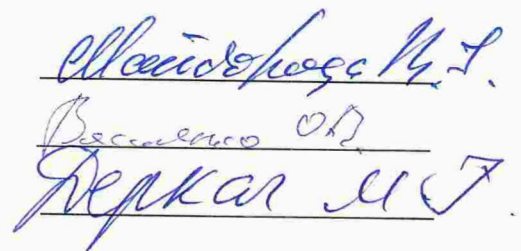 Майборода
Василенко О.В.
Деркач М.